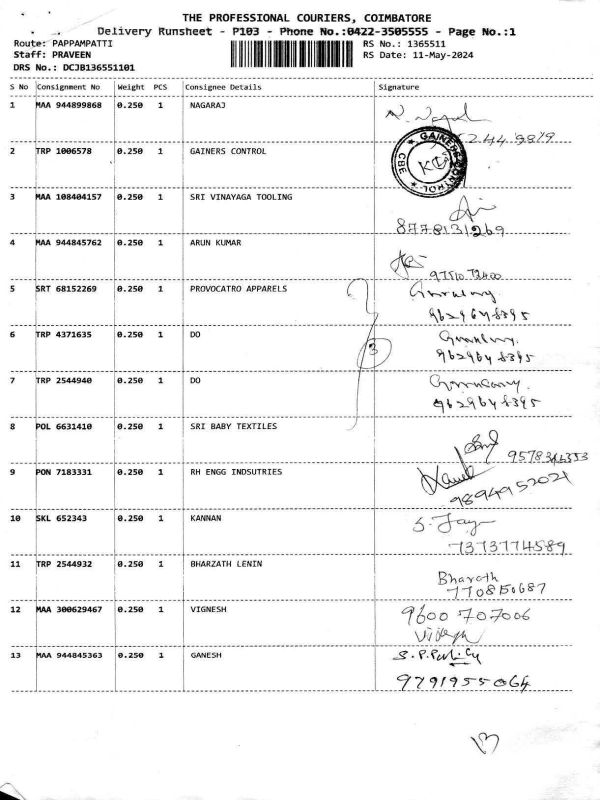 THE PROFESSIONAL COURIERS, COIMBATORE
Delivery Runsheet - P103 - Phone No.:0422-3505555 - Page No.:1
Route: PAPPAMPATTI RS No.: 1365511
Staff: PRAVEEN RS Date: 11-May-2024
DRS No.: DCJB136551101
S No Consignment No Weight PCS Consignee Details Signature
1 MAA 944899868 0.250 1 NAGARAJ
2 TRP 1006578 0.250 1 GAINERS CONTROL
GAINERS CONTROL CBE
3 MAA 108404157 0.250 1 SRI VINAYAGA TOOLING
8778131269
4 MAA 944845762 0.250 1 ARUN KUMAR
97510 72400
5 SRT 68152269 0.250 1 PROVOCATRO APPARELS
9629648395
6 TRP 4371635 0.250 1 DO
3
9629648395
7 TRP 2544940 0.250 1 DO
9629648395
8 POL 6631410 0.250 1 SRI BABY TEXTILES
9 PON 7183331 0.250 1 RH ENGG INDSUTRIES
9894952021
10 SKL 652343 0.250 1 KANNAN
S. Jay
7373774589
11 TRP 2544932 0.250 1 BHARZATH LENIN
Bharath
7708150687
12 MAA 300629467 0.250 1 VIGNESH
9600 707006
13 MAA 944845363 0.250 1 GANESH
9791955064
13